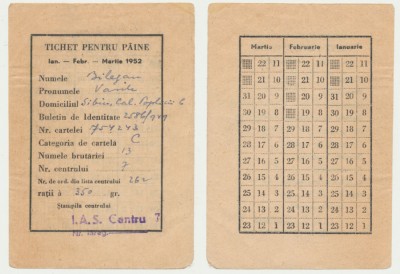 TICHET PENTRU PÂINE
Ian. — Febr. — Martie 1952
Numele Bileșan
Pronumele Vasile
Domiciliul Sibiu, Cal. 6
Buletin de Identitate 2586/949
Nr. cartelei 754243
Categoria de cartelă C
Numele brutăriei 13
Nr. centrului 7
Nr. de ord. din lista centrului 262
rații à 350 gr.
Ștampila centrului
I.A.S. Centru 7
Martie Februarie Ianuarie
22 11 22 11 22 11
21 10 21 10 21 10
31 20 9 31 20 9 31 20 9
30 19 8 30 19 8 30 19 8
29 18 7 29 18 7 29 18 7
28 17 6 28 17 6 28 17 6
27 16 5 27 16 5 27 16 5
26 15 4 26 15 4 26 15 4
25 14 3 25 14 3 25 14 3
24 13 2 24 13 2 24 13 2
23 12 1 23 12 1 23 12 1